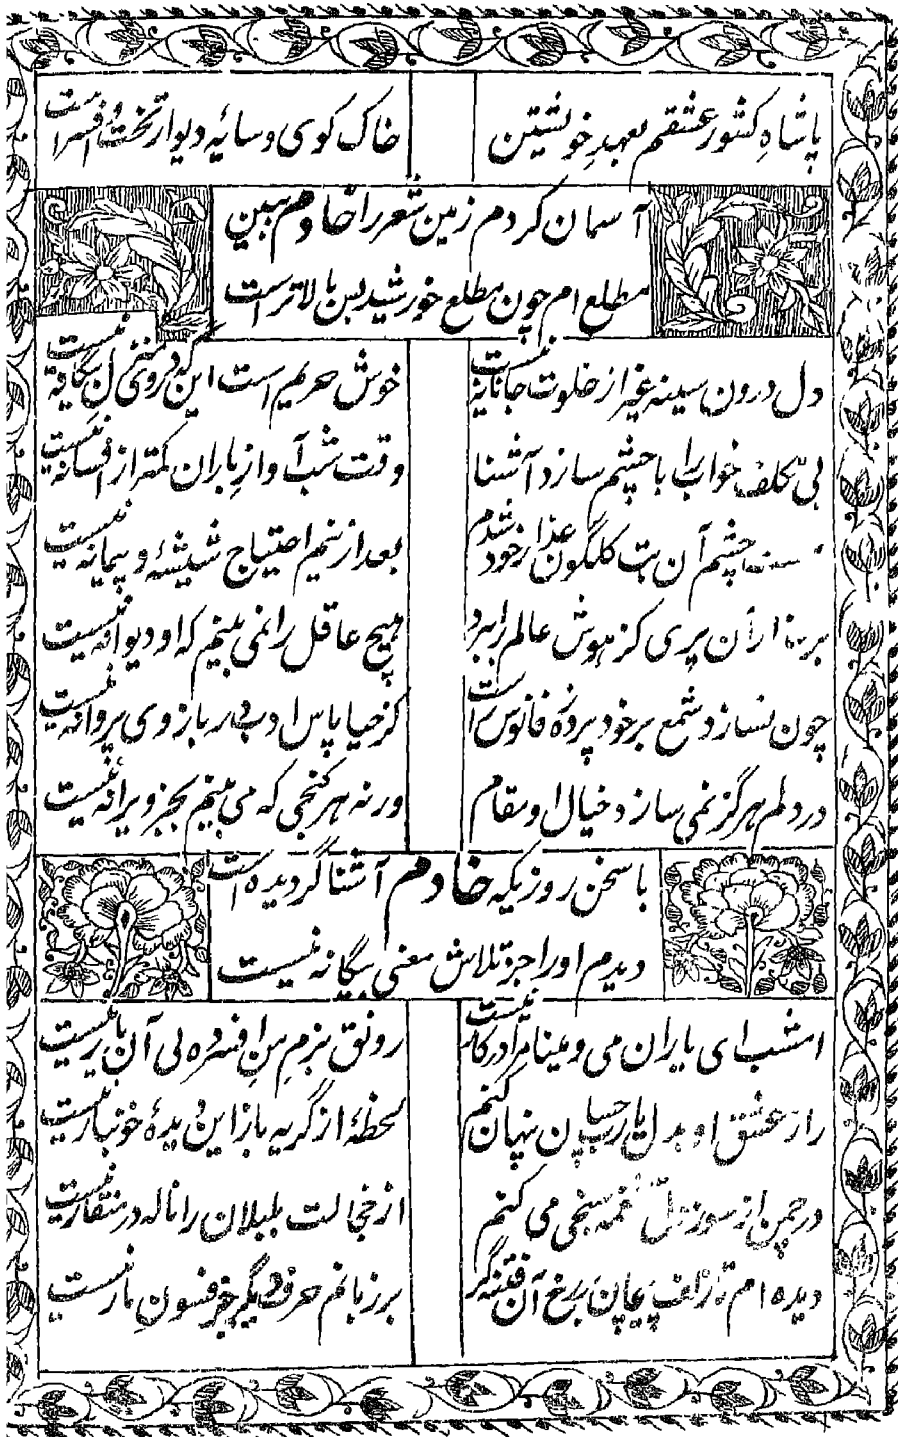 پاشاهِ کشورِ عشقم بعهدِ خویشتن خاک کوی و سایهٔ دیوار تخت و افسر است
آسمان کردم زمین شعر را خادم ببین
مطلع ام چون مطلع خورشید بس بالاتر است
دل درون سینه غیر از خلوت جانانه نیست خوش حریم است این که در وی منزل بیگانه نیست
بی تکلف خواب را با چشم سازد آشنا وقت شب آوازِ باران کمتر از افسانه نیست
چشم آن بت گلگون عذار از خود شدم بعد ازینم احتیاج شیشهٔ و پیمانه نیست
آن پری کز هوش عالم را برد هیچ عاقل را نمی بینم که او دیوانه نیست
چون نسازد شمع بر خود پردهٔ فانوس راست کز حیا پاس ادب در بازوی پروانه نیست
در دلم هرگز نمی سازد خیال او مقام ورنه هر گنجی که می بینم بجز ویرانه نیست
با سخن روزیکه خادم آشنا گردیده است
دیدم او را جز تلاش معنی بیگانه نیست
امشب ای یاران می و مینا مرا درکار نیست رونق بزمِ منِ افسرده بی آن یار نیست
راز عشق او بدل یارب چسان پنهان کنم لحظهٔ از گریه باز این دیدهٔ خونبار نیست
در چمن از سوز دل نغمه سنجی می کنم از خجالت بلبلان را ناله در منقار نیست
دیده ام تا زلف پیچان برخ آن فتنه گر بر زبانم حرف دیگر جز فسونِ مار نیست